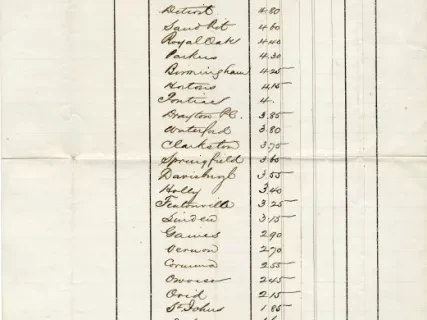 Detroit 4.80
Sand Pit 4.60
Royal Oak 4.40
Parkers 4.30
Birmingham 4.25
Hortons 4.15
Pontiac 4.
Drayton Pl. 3.85
Waterford 3.80
Clarkston 3.75
Springfield 3.65
Davisburgh 3.55
Holly 3.40
Fentonville 3.25
Linden 3.15
Gaines 2.90
Vernon 2.70
Corunna 2.55
Owosso 2.45
Ovid 2.15
St Johns 1.85